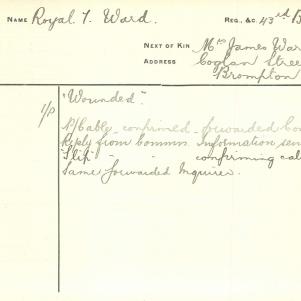 NAME Royal T. Ward. REG., &c 43rd B
NEXT OF KIN Mrs James War
ADDRESS Coglan Stree
Brompton
"Wounded".
1/P P/Cably confirmed forwarded Co
Reply from Commn. Information sen
"Slip" - - confirming cal
Same forwarded Inquirer.